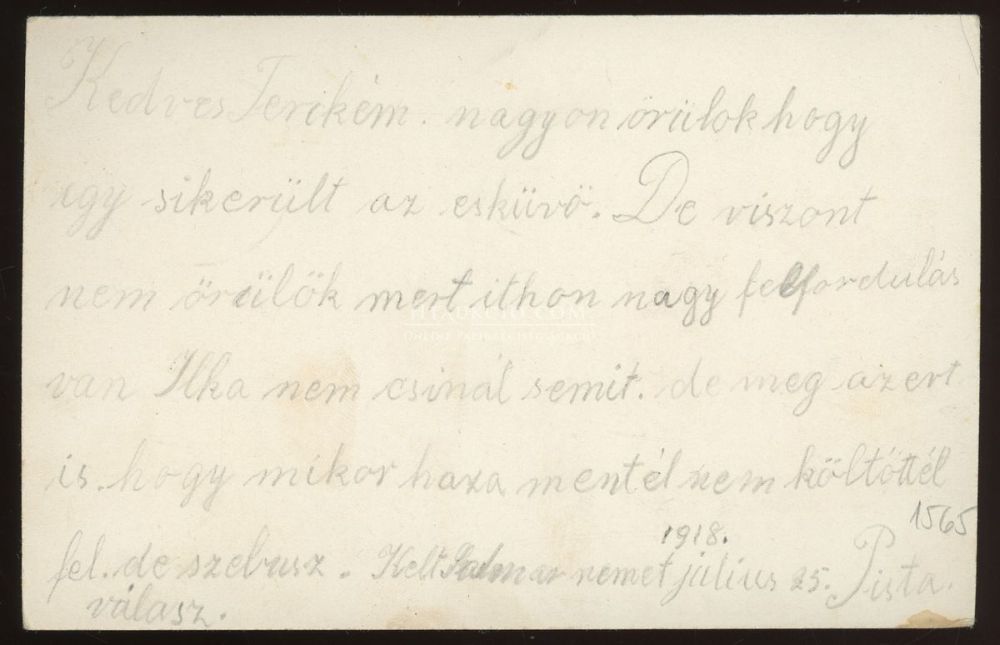 Kedves Terikém. nagyon örülok hogy
igy sikerült az esküvö. De viszont
nem örülök mert ithon nagy felfordulás
van Ilka nem csinál semit. de meg azert
is. hogy mikor haza mentél nem költöttél
1565
1918.
fel. de szebusz. Kelt Szatmar nemet július 25. Pista.
válasz.